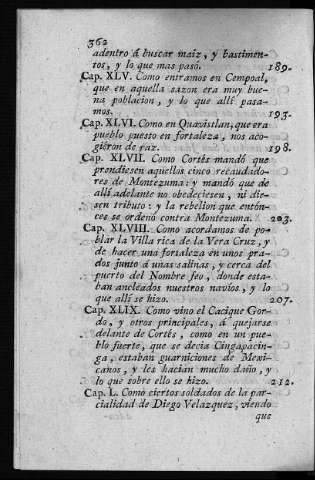 362
adentro á buscar maiz, y bastimen-
tos, y lo que mas pasó. 189.
Cap. XLV. Como entramos en Cempoal,
que en aquella sazon era muy bue-
na poblacion, y lo que allí pasa-
mos. 193.
Cap. XLVI. Como en Quavistlan, que era
pueblo puesto en fortaleza, nos aco-
gieron de paz. 198.
Cap. XLVII. Como Cortés mandó que
prendiesen aquellos cinco recaudado-
res de Montezuma: y mandó que de
allí adelante no obedeciesen, ni die-
sen tributo: y la rebelion que entón-
ces se ordenó contra Montezuma. 203.
Cap. XLVIII. Como acordamos de po-
blar la Villa rica de la Vera Cruz, y
de hacer una fortaleza en unos pra-
dos junto á unas salinas, y cerca del
puerto del Nombre feo, donde esta-
ban ancleados nuestros navios, y lo
que allí se hizo. 207.
Cap. XLIX. Como vino el Cacique Gor-
do, y otros principales, á quejarse
delante de Cortés, como en un pue-
blo fuerte, que se decia Cingapacin-
ga, estaban guarniciones de Mexi-
canos, y les hacian mucho daño, y
lo que sobre ello se hizo. 212.
Cap. L. Como ciertos soldados de la par-
cialidad de Diego Velazquez, viendo
que